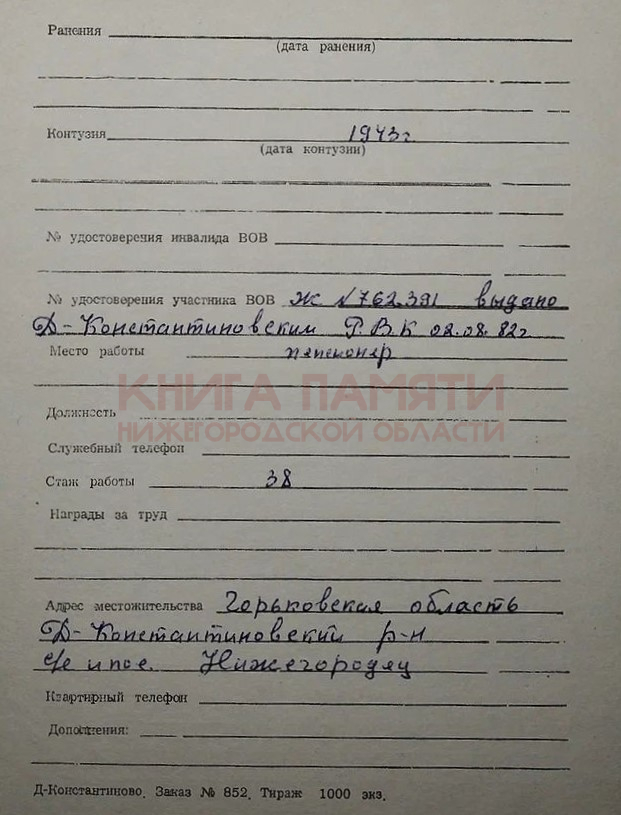 Ранения
(дата ранения)
Контузия 1943г.
(дата контузии)
№ удостоверения инвалида ВОВ
№ удостоверения участника ВОВ Ж №762391 выдано
Д-Константиновским Р.В.К 02.08.82г
Место работы пенсионер
КНИГА ПАМЯТИ
НИЖЕГОРОДСКОЙ ОБЛАСТИ
Должность
Служебный телефон
Стаж работы 38
Награды за труд
Адрес местожительства Горьковская область
Д-Константиновский р-н
Нижегородец
Квартирный телефон
Дополнения:
Д-Константиново. Заказ № 852. Тираж 1000 экз.